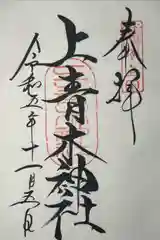 奉拝
上青木神社
令和五年十一月五日